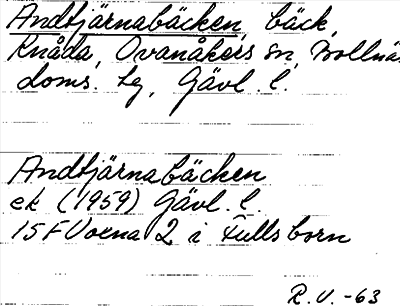 Andtjärnabäcken, bäck,
Knåda, Ovanåkers sn, Bollnäs
doms. lg, Gävl. l.
Andtjärnabäcken
ek (1959) Gävl. l.
15F Voxna 2 i Fullsborn
R.U. -63